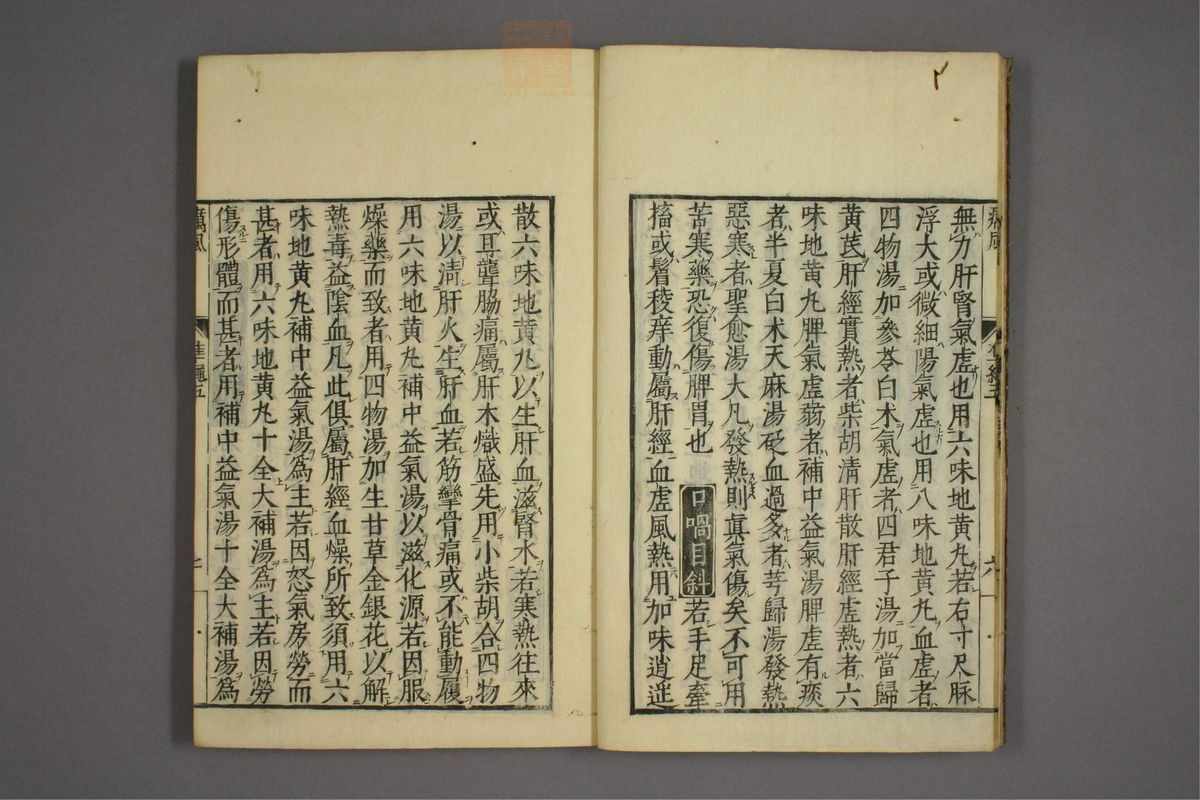 無力肝腎氣虛也用六味地黄丸若右寸尺脉
浮大或微細陽氣虛也用八味地黄丸血虛者
四物湯加參苓白朮氣虛者四君子湯加當歸
黄芪肝經實熱者柴胡清肝散肝經虛熱者六
味地黄丸脾氣虛弱者補中益氣湯脾虛有痰
者半夏白朮天麻湯砭血過多者芎歸湯發熱
惡寒者聖愈湯大凡發熱則眞氣傷矣不可用
苦寒藥恐復傷脾胃也 口喎目斜 若手足牽
搐或眉稜痒動屬肝經血虛風熱用加味逍遥
散六味地黄丸以生肝血滋腎水若寒熱往來
或耳聾脇痛屬肝木熾盛先用小柴胡合四物
湯以清肝火生肝血若筋攣骨痛或不能動履
用六味地黄丸補中益氣湯以滋化源若因服
燥藥而致者用四物湯加生甘草金銀花以解
熱毒益陰血凡此俱屬肝經血燥所致須用六
味地黄丸補中益氣湯爲主若因怒氣房勞而
甚者用六味地黄丸十全大補湯爲主若因勞
傷形體而甚者用補中益氣湯十全大補湯爲
癘風